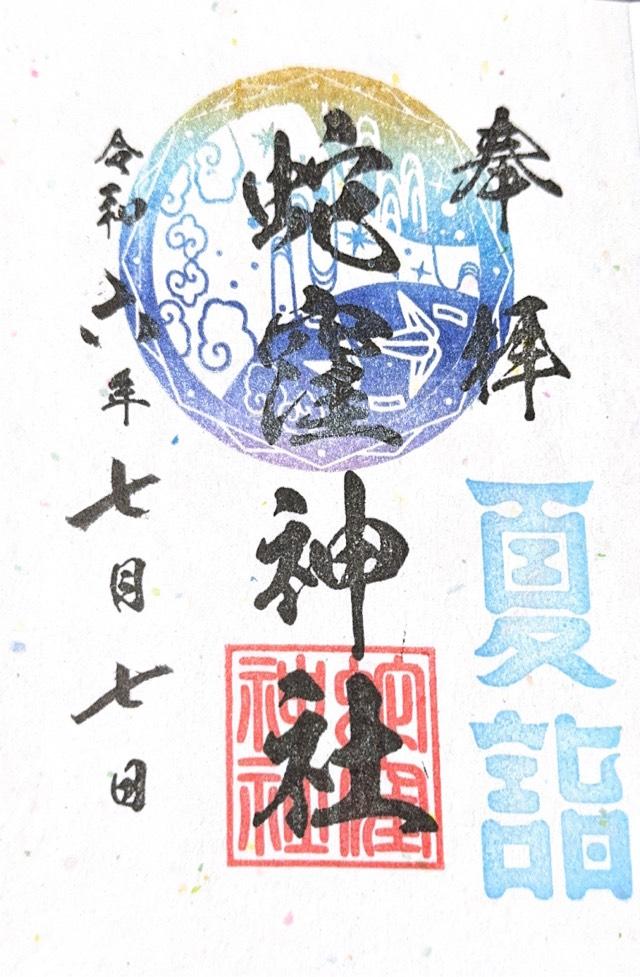 奉拝
夏詣
蛇窪神社
蛇窪神社
令和六年七月七日